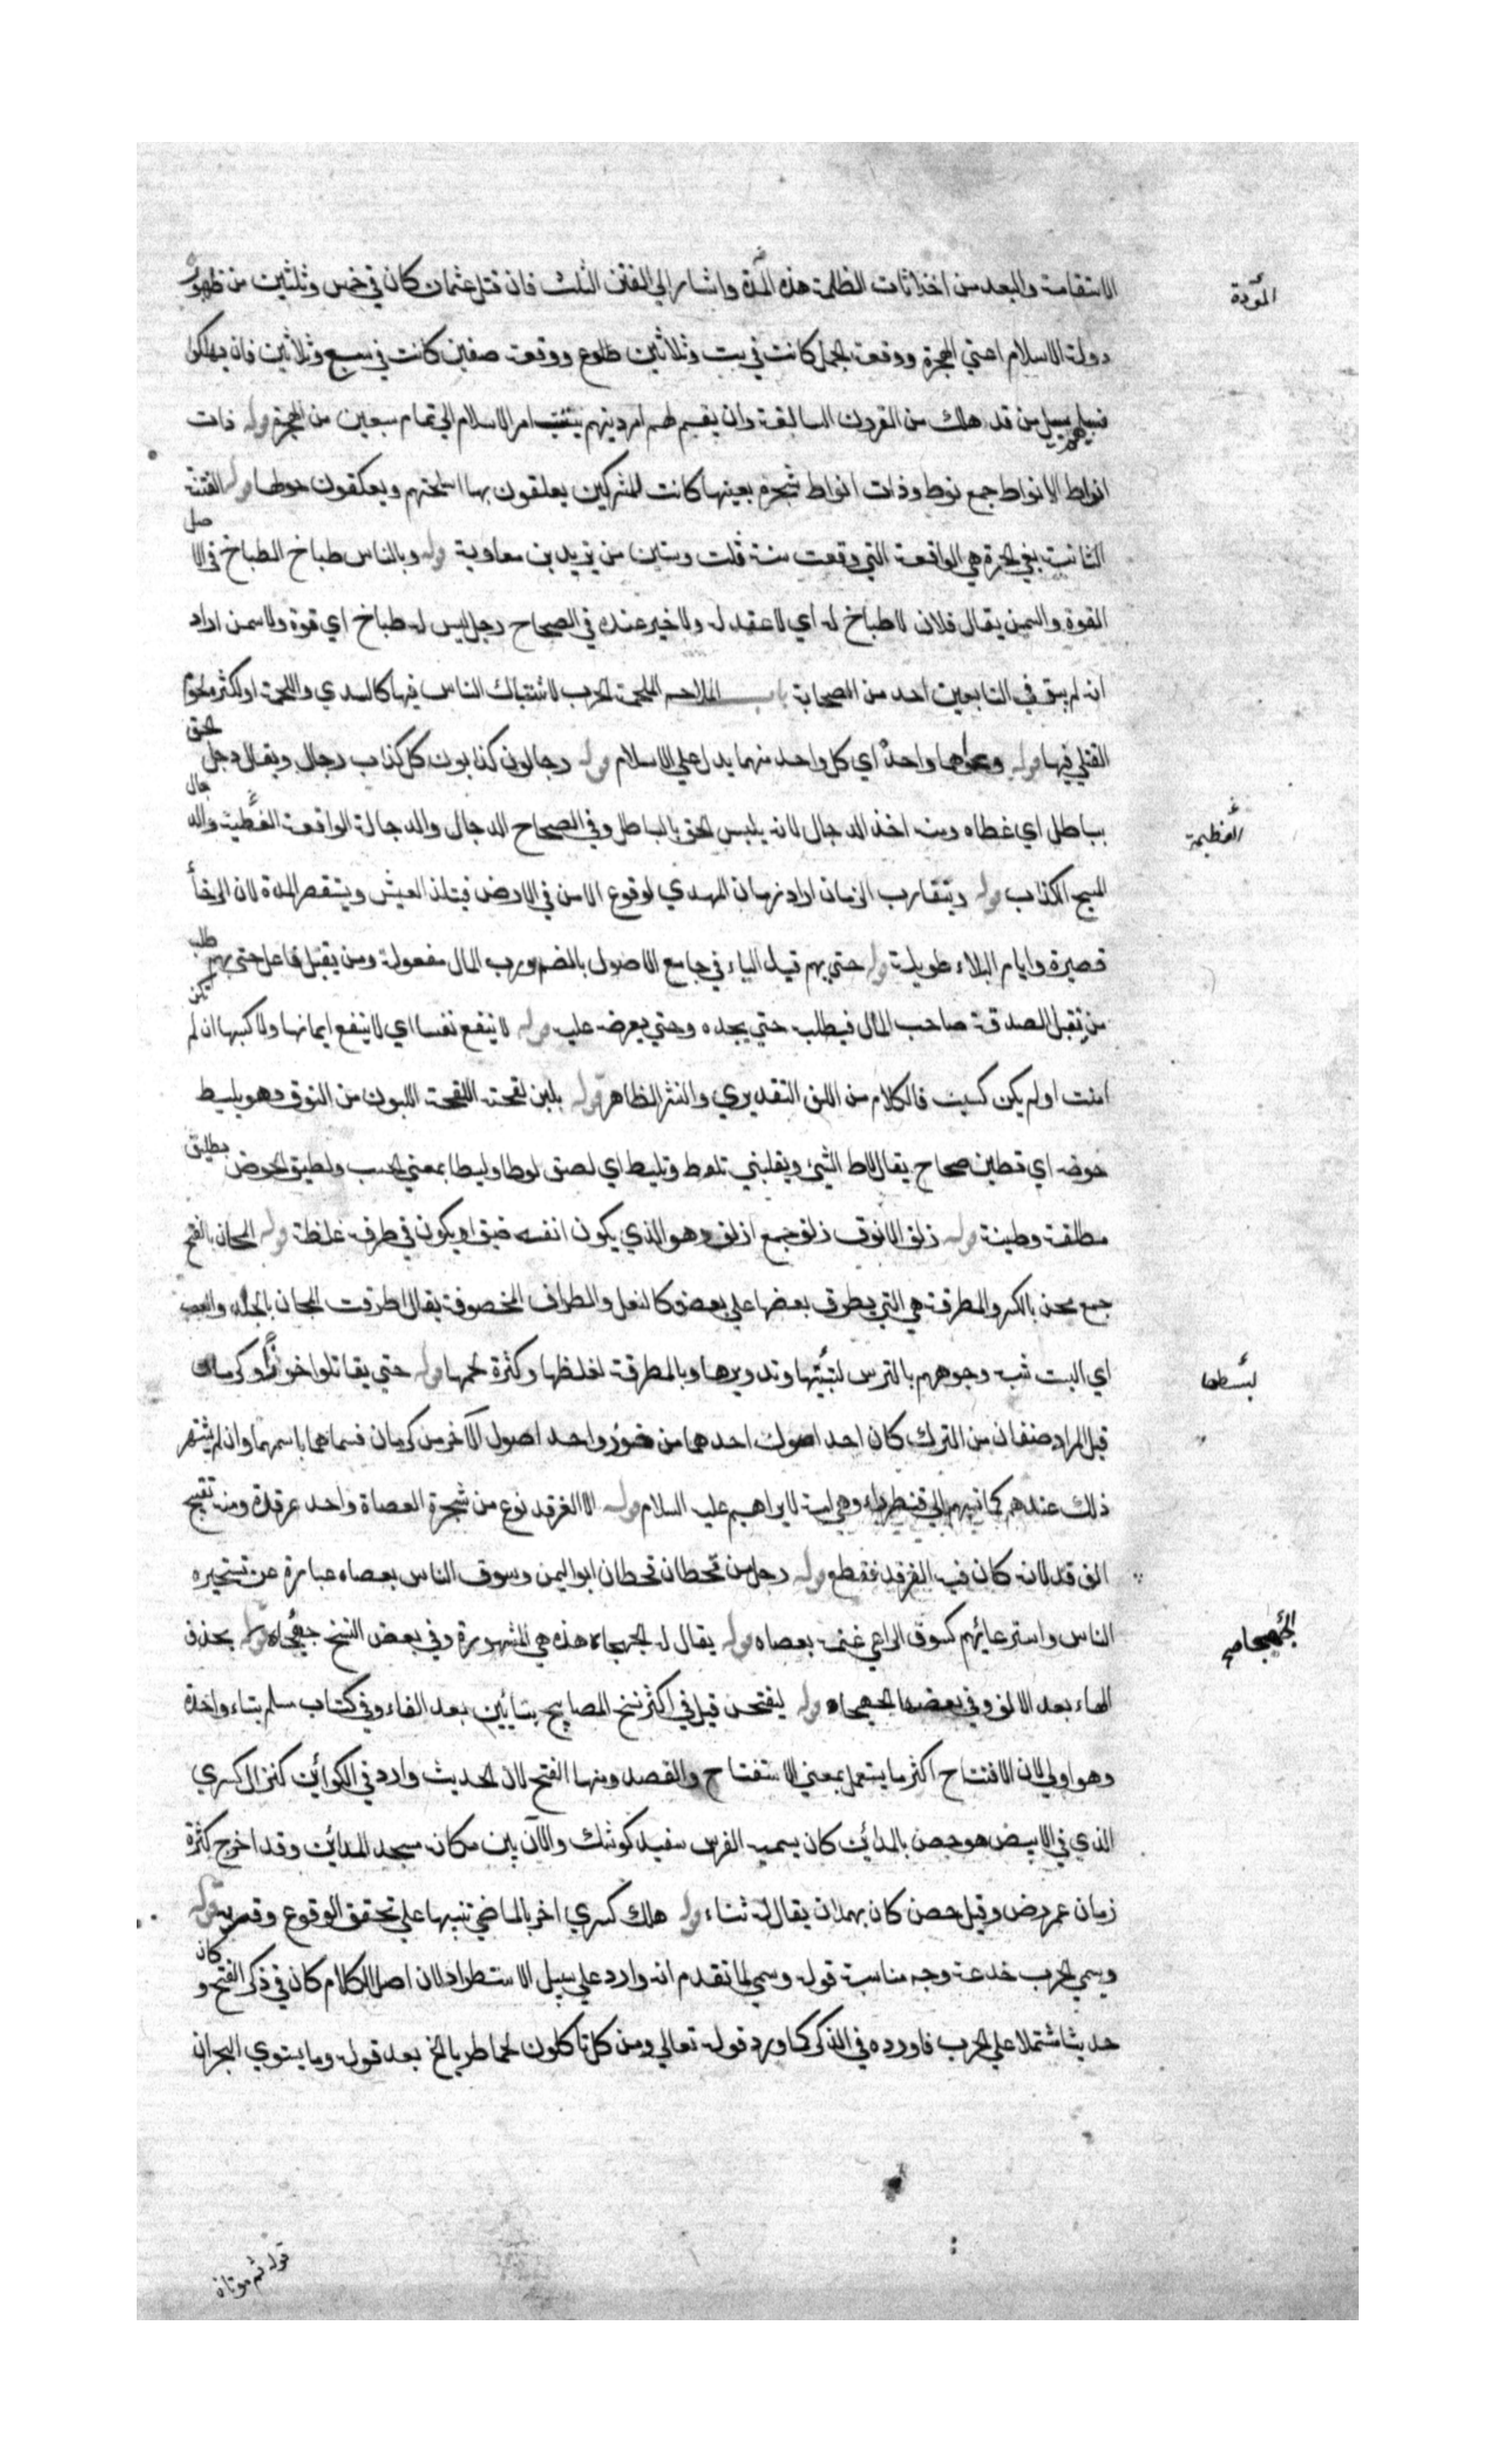 الاستقامة والبعد من احداثات الظلمة هذه المدة واشار الي الفتن الثلث فان قتل عثمان كان في خمس وثلثين من ظهور
المؤدة
دولة الاسلام اعني الهجرة ووقعة الجمل كانت في ست وثلاثين ووقعة صفين كانت في سبع وثلاثين فان يهلكوا
فسبيلهم سبيل من قد هلك من القرون السالفة وان يقم لهم امر دينهم امر الاسلام الي تمام سبعين من الهجرة قوله ذات
انواط الانواط جمع نوط وذات انواط شجرة بعينها كانت للمشركين يعلقون بها اسلحتهم ويعكفون حولها قوله الفتنة
الثانية يعني الحرة هي الواقعة التي وقعت سنة ثلث وستين من يزيد بن معاوية قوله وبالناس طباخ الطباخ في الاصل
القوة والسمن يقال فلان لا طباخ له اي لا عقل له ولا خير عنده في الصحاح رجل ليس له طباخ اي قوة ولا سمن اراد
انه لم يبق في التابعين احد من الصحابة باب الملاحم الملحمة الحرب لاشتباك الناس فيها كالسدي واللحمة او لكثرة لحوم
القتلي فيها قوله ودعواهما واحدة اي كل واحد منهما يدل علي الاسلام قوله دجالون كذابون كل كذاب دجال ويقال دجل الحق
بباطل اي غطاه ومنه اخذ الدجال لانه يلبس الحق بالباطل وفي الصحاح الدجال والدجالة الواقعة الغطية والدجال
العظيمة
المسيح الكذاب قوله ويتقارب الزمان اراد زمان المهدي لوقوع الامن في الارض فيتلذ العيش ويستقصر المدة لان الرخاء
قصيرة وايام البلاء طويلة قوله حتي يهم قيل الياء في جامع الاصول بالضم ورب المال مفعوله ومن يقبل فاعل حتي يهم طلب
من يقبل الصدقة صاحب المال فيطلب حتي يجده وحتي يعرضه عليه قوله لا ينفع نفسا اي لا ينفع ايمانها ولا كسبها ان لم تكن
امنت او لم يكن كسبت فالكلام من اللف التقديري والنشر الظاهر قوله بلبن لقحته اللقحة اللبون من النوق وهو يليط
حوضه اي تطين صحاح يقال لاط الشيئ وبقلبي تلوط وتليط اي لصق لوطا وليطا بمعني الحب
قوله ذلف الانوف ذلف جمع اذلف وهو الذي يكون انفه ضيقا ويكون في طرفه غلظة قوله المجان بالفتح
جمع مجن بالكسر والمطرقة هي التي يطرق بعضها علي بعض كالنعل والطراف المخصوفة يقال اطرقت المجان بالجلد والعصب
اي البست شبه وجوههم بالترس وتدويرها وبالمطرقة لغلظها وكثرة لحمها قوله حتي يقاتلوا خوزا وكرمان
لبسطها
قيل المراد صنفان من الترك كان احد اصول احدهما من خوز واحد اصول الآخر من كرمان فسماهما باسمهما وان لم يشتهر
ذلك عندهم كما نسبهم الي قنطوراء وهي امة لابراهيم عليه السلام قوله الا الغرقد نوع من شجرة العضاة واحد غرقدة ومنه بقيع
الغرقد لانه كان فيه الغرقد فقطع قوله رجل من قحطان قحطان ابو اليمن وسوق الناس بعصاه عبارة عن تسخيره
الناس واسترعائهم كسوق الراعي غنمه بعصاه قوله يقال له الجهجاه هذه هي المشهورة وفي بعض النسخ قوله بحذف
الهاء بعد الالف وفي بعضها قوله ليفتحن قيل في اكثر نسخ المصابيح بتائين بعد الفاء وفي كتاب مسلم بتاء واحدة
وهو اولي لان الافتتاح اكثر ما يستعمل بمعني الاستفتاح والقصد ومنها الفتح لان الحديث وارد في الكوائن كنز ال كسري
الذي في الابيض هو حصن بالمدائن كان يسميه الفرس سفيد كوشك والآن بين مكانه مسجد المدائن وقد اخرج كنزه
زمان عمر رض وقيل حصن كان بهمدان يقال له قوله هلك كسري اخبر بالماضي تنبيها علي تحقق الوقوع وقربه قوله
وسمي الحرب خدعة وجه مناسبة قوله وسمي لما تقدم انه وارد علي سبيل الاستطراد لان اصل الكلام كان في ذكر الفتح وكان
حديثا مشتملا علي الحرب فاورده في الذكر كما ورد قوله تعالي ومن كل تاكلون لحما طريا الخ بعد قوله وما يستوي البحران
قوله ثم موتان